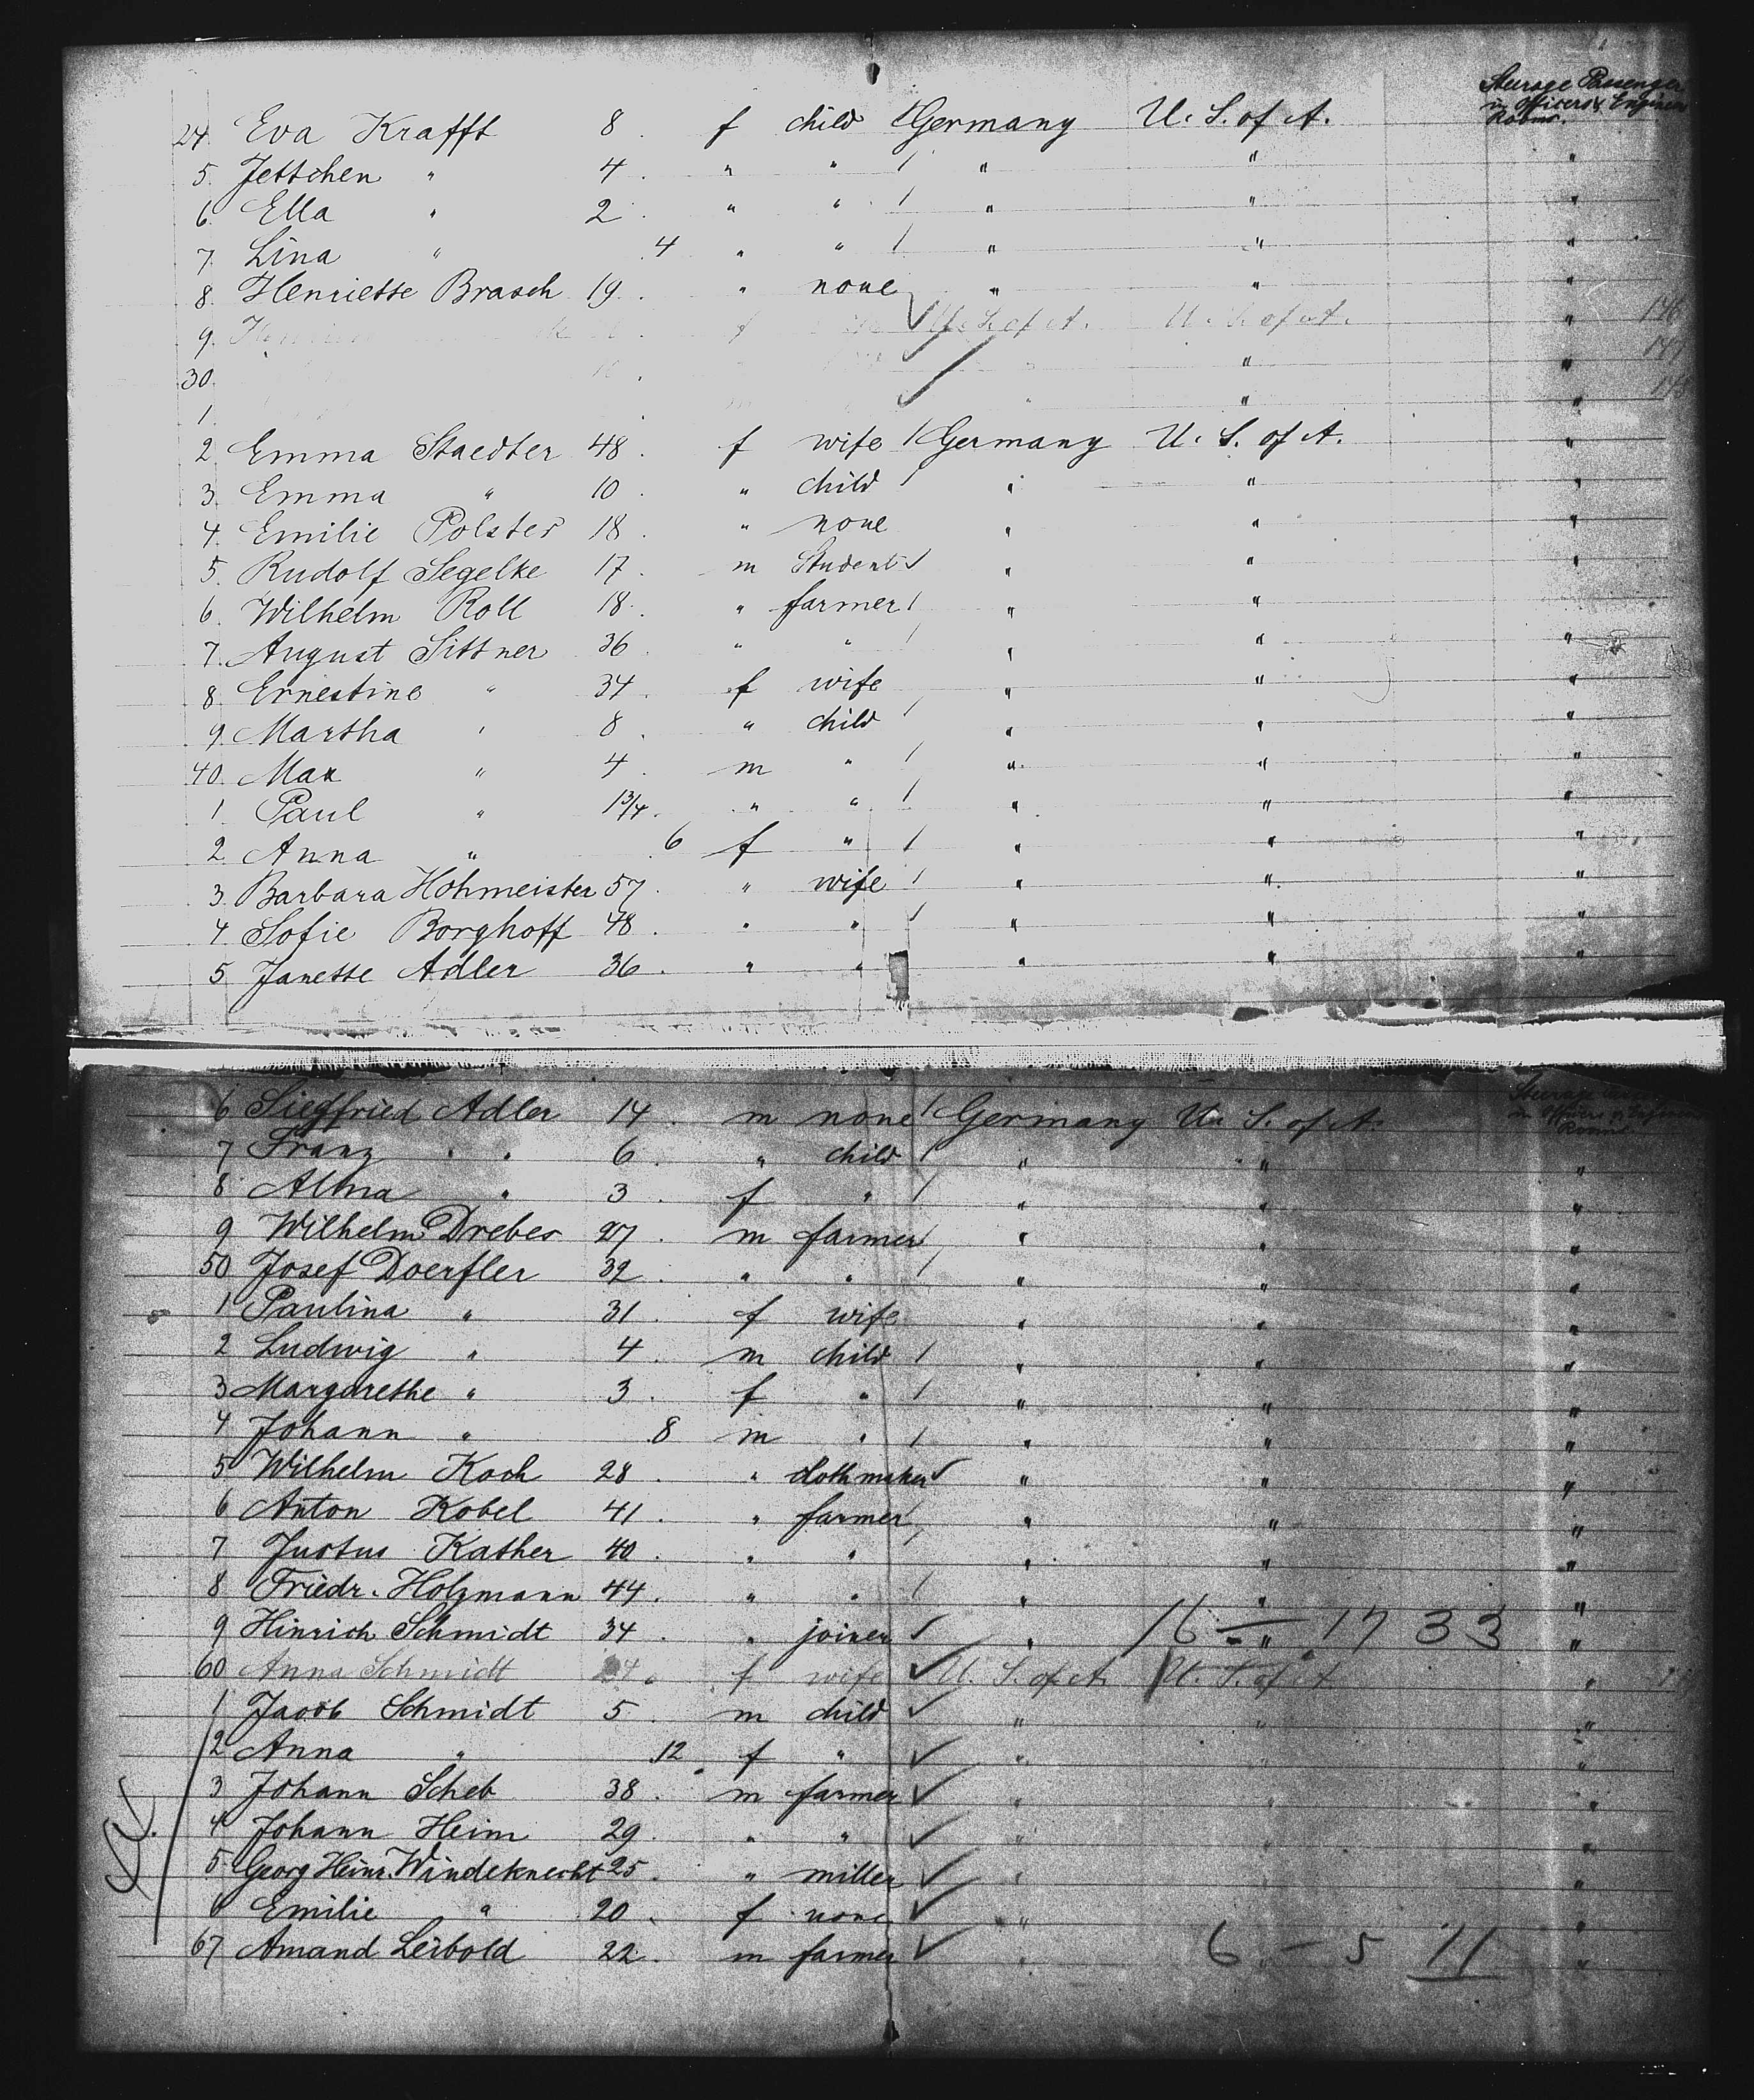 Steerage Passenger
in Officers & Engineer
Rooms.
24. Eva Krafft 8. f child / Germany U. S. of A.
5. Jettchen " 4. " " / " " "
6. Ella " 2. " " / " " "
7. Lina " 4 " " / " " "
8. Henriette Brasch 19. " none " " "
9. f U. S. of A. U. S. of A. "
30. " "
1. " "
2 Emma Staedter 48. f wife / Germany U. S. of A. "
3. Emma " 10. " child / " " "
4. Emilie Polster 18. " none " " "
5. Rudolf Segelke 17. m Student ✓ " " "
6. Wilhelm Roll 18. " farmer / " " "
7. August Sittner 36 " " / " " "
8. Ernestine " 34. f wife " " "
9. Martha " 8. " child / " " "
40. Max " 4. m " / " " "
1. Paul " 1 3/4. " " / " " "
2. Anna " 6 f " / " " "
3. Barbara Hohmeister 57. " wife / " " "
4. Sofie Borghoff 48. " " / " " "
5 Janette Adler 36. " " " " "
Steerage
in Officers & Engineer
Rooms
6 Siegfried Adler 14. m none / Germany U. S. of A.
7 Franz " " 6. " child / " " "
8 Alma " 3. f " / " " "
9 Wilhelm Dreber 27. m farmer / " " "
50 Josef Doerfler 32. " " / " " "
1 Paulina " 31. f wife " " "
2 Ludwig " 4. m child / " " "
3 Margarethe " 3. f " / " " "
4 Johann " 8 m " / " " "
5 Wilhelm Koch 28. " clothmaker ✓ " " "
6 Anton Kobel 41. " farmer / " " "
7 Justus Kather 40. " " / " " "
8 Friedr. Holzmann 44. " " / " " "
9 Hinrich Schmidt 34. " joiner ✓ " 16 – " 17 33 "
60 Anna Schmidt 24. f wife ✓ U. S. of A. U. S. of A. "
1 Jacob Schmidt 5. m child ✓ " " "
2 Anna " 12 f " ✓ " " "
3 Johann Scheb 38. m farmer ✓ " " "
4 Johann Heim 29. " " ✓ " " "
5 Georg Heinr. Windeknecht 25. " miller ✓ " " "
6 Emilie " 20. f none ✓ " "
67 Amand Leibold 22. m farmer ✓ " 6 – 5 11 "